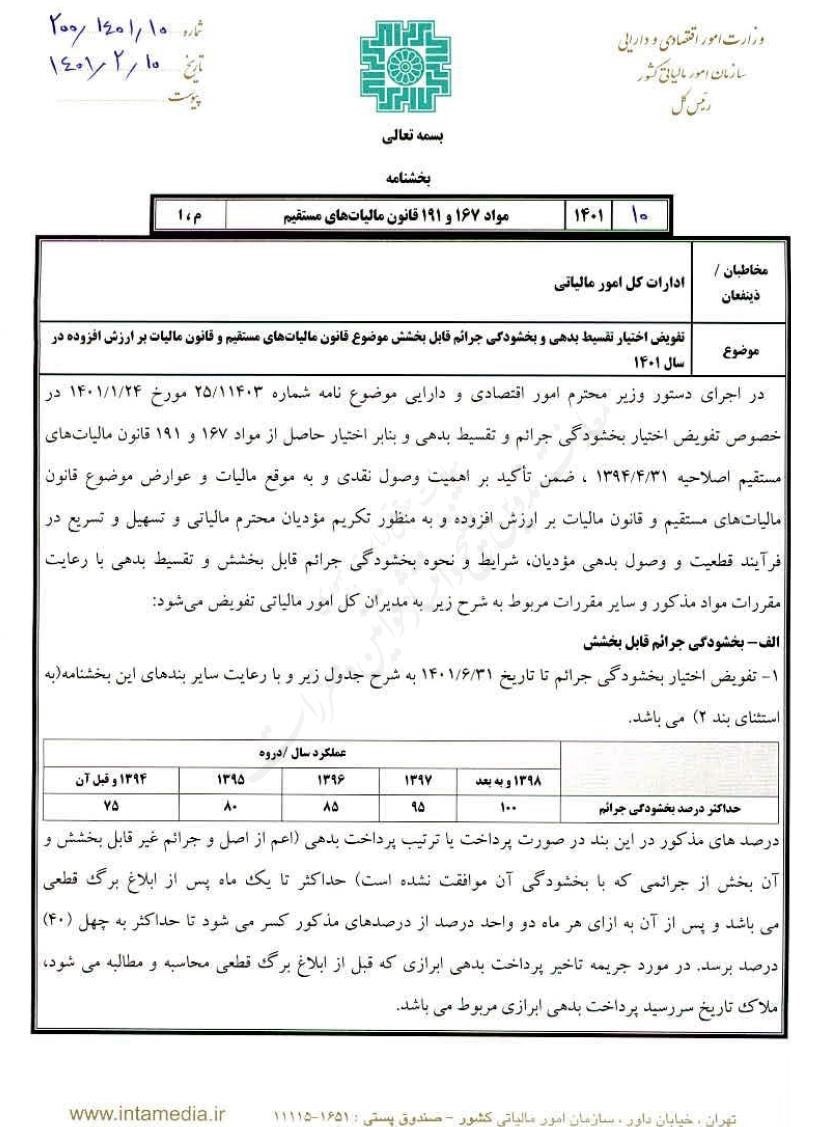 وزارت امور اقتصادی و دارایی
سازمان امور مالیاتی کشور
رئیس کل
شماره ۲۰۰/۱۴۰۱/۱۰
تاریخ ۱۴۰۱/۲/۱۰
پیوست
بسمه تعالی
بخشنامه
۱۰ ۱۴۰۱ مواد ۱۶۷ و ۱۹۱ قانون مالیات‌های مستقیم م، ا
مخاطبان / ذینفعان
ادارات کل امور مالیاتی
موضوع
تفویض اختیار تقسیط بدهی و بخشودگی جرائم قابل بخشش موضوع قانون مالیات‌های مستقیم و قانون مالیات بر ارزش افزوده در
سال ۱۴۰۱
در اجرای دستور وزیر محترم امور اقتصادی و دارایی موضوع نامه شماره ۲۵/۱۱۴۰۳ مورخ ۱۴۰۱/۱/۲۴ در
خصوص تفویض اختیار بخشودگی جرائم و تقسیط بدهی و بنابر اختیار حاصل از مواد ۱۶۷ و ۱۹۱ قانون مالیات‌های
مستقیم اصلاحیه ۱۳۹۴/۴/۳۱ ، ضمن تأکید بر اهمیت وصول نقدی و به موقع مالیات و عوارض موضوع قانون
مالیات‌های مستقیم و قانون مالیات بر ارزش افزوده و به منظور تکریم مؤدیان محترم مالیاتی و تسهیل و تسریع در
فرآیند قطعیت و وصول بدهی مؤدیان، شرایط و نحوه بخشودگی جرائم قابل بخشش و تقسیط بدهی با رعایت
مقررات مواد مذکور و سایر مقررات مربوط به شرح زیر به مدیران کل امور مالیاتی تفویض می‌شود:
الف- بخشودگی جرائم قابل بخشش
۱- تفویض اختیار بخشودگی جرائم تا تاریخ ۱۴۰۱/۶/۳۱ به شرح جدول زیر و با رعایت سایر بندهای این بخشنامه(به
استثنای بند ۲) می باشد.
عملکرد سال /دروه
۱۳۹۸ و به بعد ۱۳۹۷ ۱۳۹۶ ۱۳۹۵ ۱۳۹۴ و قبل آن
حداکثر درصد بخشودگی جرائم ۱۰۰ ۹۵ ۸۵ ۸۰ ۷۵
درصد های مذکور در این بند در صورت پرداخت یا ترتیب پرداخت بدهی (اعم از اصل و جرائم غیر قابل بخشش و
آن بخش از جرائمی که با بخشودگی آن موافقت نشده است) حداکثر تا یک ماه پس از ابلاغ برگ قطعی
می باشد و پس از آن به ازای هر ماه دو واحد درصد از درصدهای مذکور کسر می شود تا حداکثر به چهل (۴۰)
درصد برسد. در مورد جریمه تاخیر پرداخت بدهی ابرازی که قبل از ابلاغ برگ قطعی محاسبه و مطالبه می شود،
ملاک تاریخ سررسید پرداخت بدهی ابرازی مربوط می باشد.
تهران ، خیابان داور ، سازمان امور مالیاتی کشور - صندوق پستی : ۱۶۵۱-۱۱۱۱۵
www.intamedia.ir